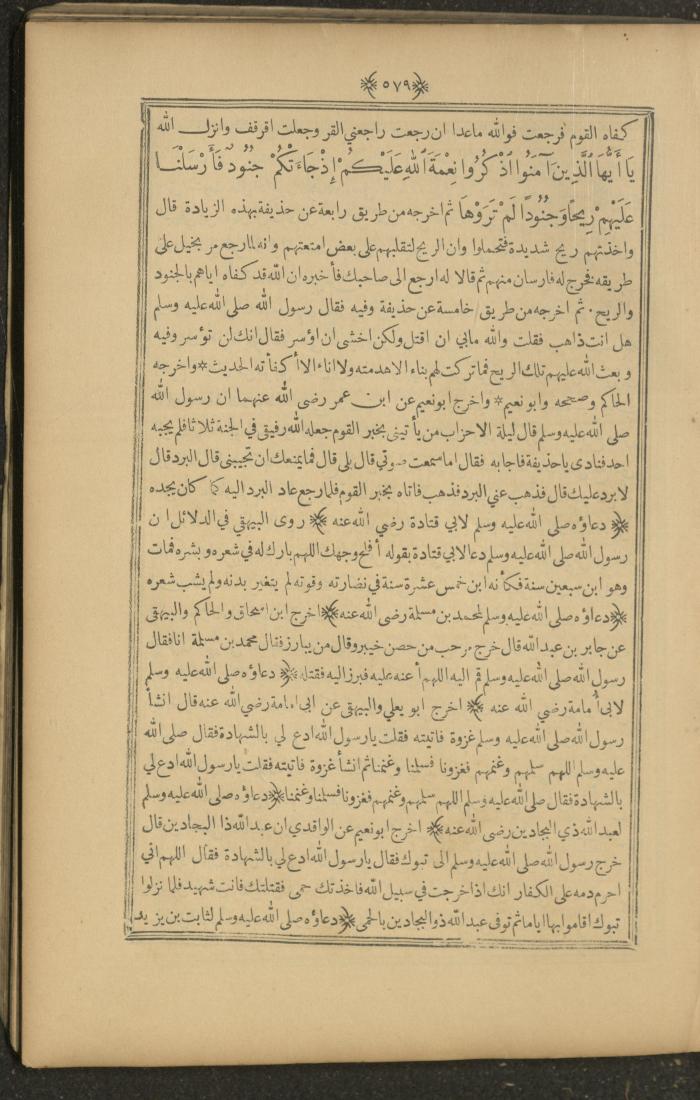 ٥٧٩
كفاه القوم فرجعت فوالله ماعدا ان رجعت راجعني القر وجعلت اقرقف وانزل الله
يَا أَيُّهَا ٱلَّذِينَ آمَنُوا ٱذْكُرُوا نِعْمَةَ ٱللهِ عَلَيْكُمْ إِذْ جَاءَتْكُمْ جُنُودٌ فَأَرْسَلْنَا
عَلَيْهِمْ رِيحًا وَجُنُودًا لَمْ تَرَوْهَا ثم اخرجه من طريق رابعة عن حذيفة بهذه الزيادة قال
واخذتهم ريح شديدة فتحملوا وان الريح لتقلبهم على بعض امتعتهم وانه لما رجع مر بخيل على
طريقه فخرج له فارسان منهم ثم قالا له ارجع الى صاحبك فأخبره ان الله قد كفاه اياهم بالجنود
والريح ٠ ثم اخرجه من طريق خامسة عن حذيفة وفيه فقال رسول الله صلى الله عليه وسلم
هل انت ذاهب فقلت والله مابي ان اقتل ولكن اخشى ان اؤسر فقال انك لن تؤسر وفيه
وبعث الله عليهم تلك الريح فما تركت لهم بناء الا هدمته ولا اناء الا أكفأته الحديث * واخرجه
الحاكم وصححه وابو نعيم * واخرج ابونعيم عن ابن عمر رضى الله عنهما ان رسول الله
صلى الله عليه وسلم قال ليلة الاحزاب من يأتيني بخبر القوم جعله الله رفيقي في الجنة ثلاثا فلم يجبه
احد فنادى ياحذيفة فاجابه فقال اما سمعت صوتي قال بلى قال فما يمنعك ان تجيبني قال البرد قال
لابرد عليك قال فذهب عني البرد فذهب فاتاه بخبر القوم فلما رجع عاد البرد اليه كما كان يجده
﴿ دعاؤه صلى الله عليه وسلم لابي قتادة رضي الله عنه ﴾ روى البيهقي في الدلائل ان
رسول الله صلى الله عليه وسلم دعا لابي قتادة بقوله أفلح وجهك اللهم بارك له في شعره وبشره فمات
وهو ابن سبعين سنة فكأنه ابن خمس عشرة سنة في نضارته وقوته لم يتغير بدنه ولم يشب شعره
﴿دعاؤه صلى الله عليه وسلم لمحمد بن مسلمة رضى الله عنه﴾ اخرج ابن اسحاق والحاكم والبيهقى
عن جابر بن عبد الله قال خرج مرحب من حصن خيبر وقال من يبارز فقال محمد بن مسلمة انا فقال
رسول الله صلى الله عليه وسلم قم اليه اللهم أعنه عليه فبرز اليه فقتله ﴿ دعاؤه صلى الله عليه وسلم
لابى أمامة رضي الله عنه ﴾ اخرج ابو يعلي والبيهقى عن ابى امامة رضي الله عنه قال انشأ
رسول الله صلى الله عليه وسلم غزوة فاتيته فقلت يارسول الله ادع لي بالشهادة فقال صلى الله
عليه وسلم اللهم سلمهم وغنمهم فغزونا فسلمنا وغنمنا ثم انشأ غزوة فاتيته فقلت يارسول الله ادع لي
بالشهادة فقال صلى الله عليه وسلم اللهم سلمهم وغنمهم فغزونا فسلمنا وغنمنا ﴿ دعاؤه صلى الله عليه وسلم
لعبد الله ذي البجادين رضى الله عنه﴾ اخرج ابونعيم عن الواقدي ان عبد الله ذا البجادين قال
خرج رسول الله صلى الله عليه وسلم الى تبوك فقال يارسول الله ادع لي بالشهادة فقال اللهم اني
احرم دمه على الكفار انك اذا خرجت في سبيل الله فاخذتك حمى فقتلتك فانت شهيد فلما نزلوا
تبوك اقاموا بها اياما ثم توفى عبد الله ذو البجادين بالحمى ﴿ دعاؤه صلى الله عليه وسلم لثابت بن يزيد